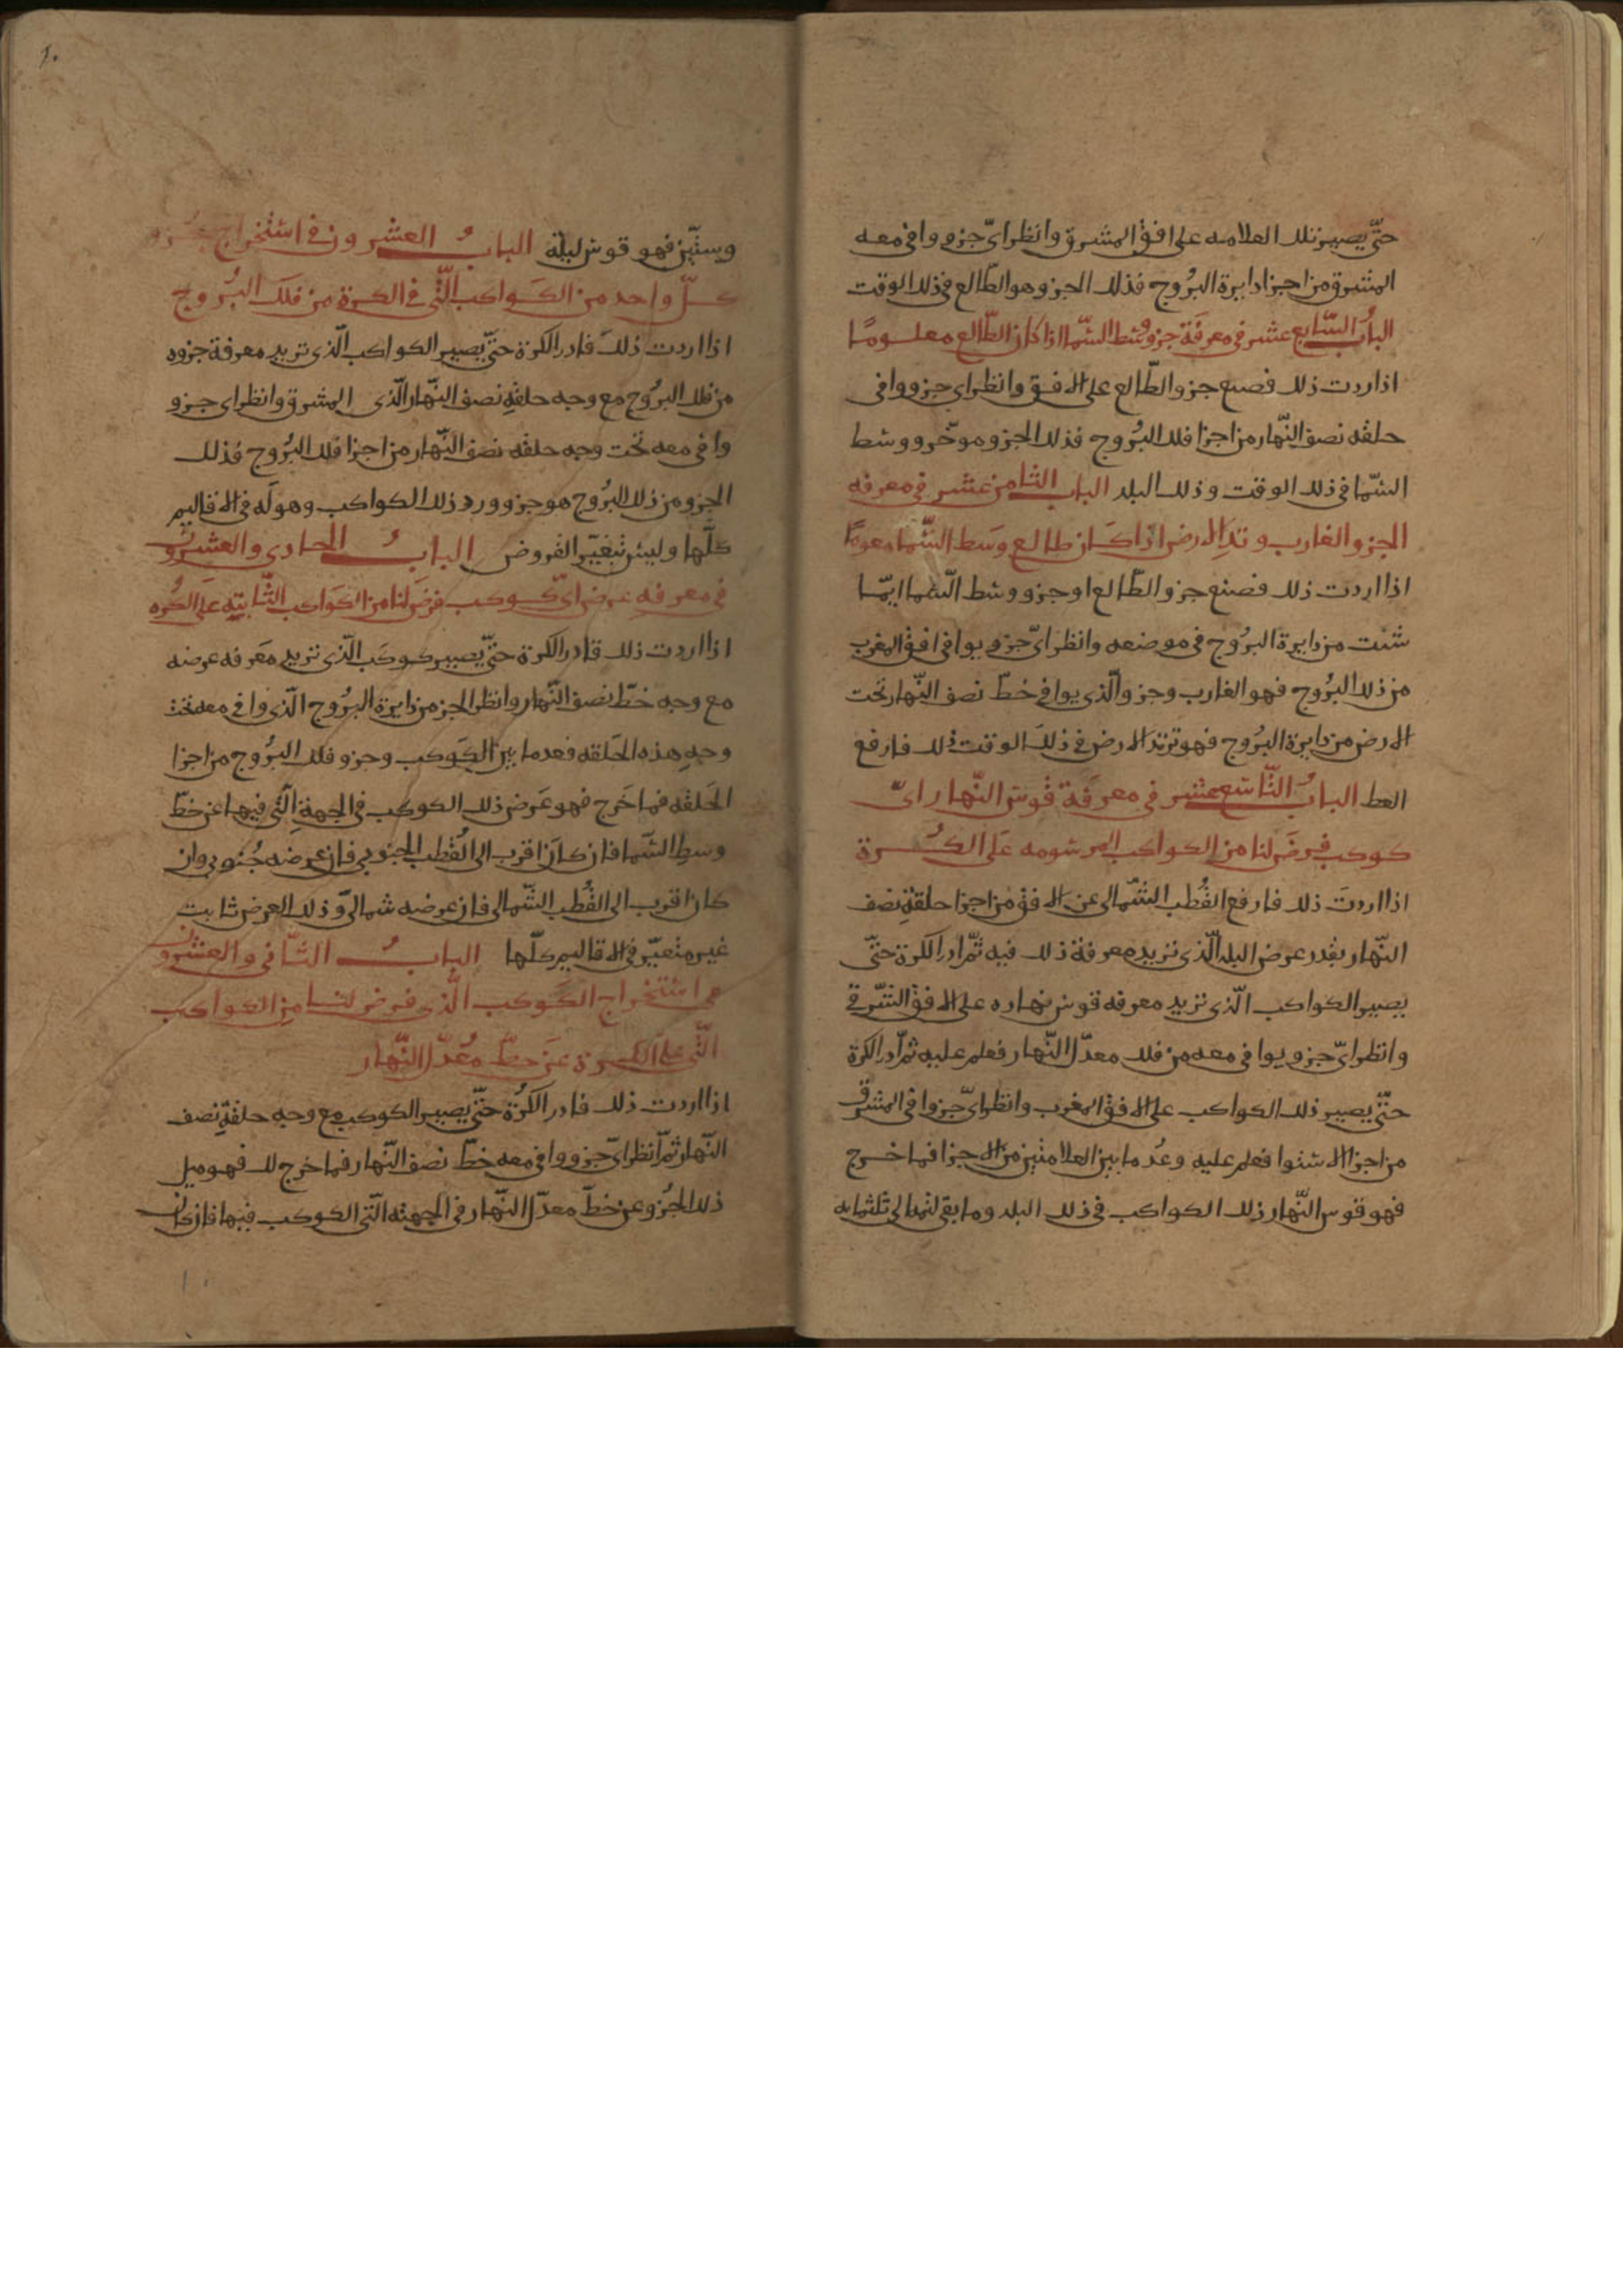 حتّى يصير تلك العلامه على افق المشرق وانظر اىّ جزو وافى معه
المشرق من اجزا دايرة البرُوج فذلك الجزو هو الطّالع فى ذلك الوقت
البابُ السّابع عشر فى معرفَة جزو وسط السّما اذا كان الطّالع معلـومًا
اذا اردت ذلك فصع جزو الطّالع على الافـق وانظر اى جزو وافى
حلقه نصف النّهار من اجزا فلك البرُوج فذلك الجزو موخّر ووسط
السّما فى ذلك الوقت وذلك البلد الباب الثامن عشر فى معرفه
الجزو الغارب وتد الارض اذا كـان طالع وسَط السّما معومًا
اذا اردت ذلك فصنع جزو الطّالع او جزو وسط السّما ايّما
شئت من دايرة البرُوج فى موضعه وانظر اىّ جزو يوافى افق المغرب
من ذلك البرُوج فهو الغارب وجزو الّذى يوافى خطّ نصف النّهار تحت
الارض من دايرة البرُوج فهو ترتد الارض فى ذلكَ الوقت ذلك فارفع
العط البابُ التّاسع عشر فى معرفَة قوس النّهار اىّ
كوكب فرضَ لنا من الكواكب المرسومه عَلى الكُـرة
اذا اردتَ ذلك فارفع القُطب الشّمالى عن الافق من اجزا حلقةِ نصف
النّهار بقدر عرض البلد الّذى تريد معرفة ذلك فيه ثمّ ادر الكرة حتّى
يصير الكواكب الّذى تريد معرفه قوس نهاره على الافق الشّرقى
وانظر اىّ جزو يوافى معه من فلك معدّل النّهار فعلم عليه ثمّ ادر الكرة
حتّى يصير ذلك الكواكب على الافق المغرب وانظر اىّ جزوا فى المشرق
من اجزا الاستوا فعلم عليه وعُد ما بين العلامتين من الاجزا فما خـرج
فهو قوس النّهار ذلك الكواكب فى ذلك البلد وما بقى لتمه الى ثلثمايه
وستّين فهو قوس ليلة البابُ العشرون فى استخراج جُزو
كـلّ واحد من الكَواكب الّتى فى الكرة من فلكَ البرُوج
اذا اردت ذلكَ فادر الكرة حتّى يصير الكواكب الّذى تريد معرفة جزوه
من فلك البرُوج مع وجه حلقةِ نصف النّهار الّذى المشرق وانظر اى جزو
وافى معه تحت وجه حلقه نصف النّهار من اجزا فلك البرُوج فذلك
الجزو من ذلك البرُوج هو جزو ورد ذلك الكواكب وهو لَه فى الاقاليم
كلّها وليس تتغيّر الفروض البابُ الحادى والعشرون
فى معرفه عرض اىّ كوكب فرضَ لنا من الكوَاكب الثّابتة عَلى الكُره
اذا اردت ذلك فادر الكرة حتّى يصير كوكَب الّذى تريد مَعرفه عرضه
مع وجه خطّ نصف النّهار وانظر الجز من دايرة البرُوج الّذى وافى معه تحت
وجهِ هذه الحَلقه فعد ما بين الكَوكب وجزو فلك البرُوج من اجزا
الحَلقه فما خَرج فهو عَرض ذلك الكوكب فى الجهةِ الّتى فيها عن خطّ
وسطِ السّما فان كاَن اقرب الى القُطب الجنوبى فان عرضه جُنوبى وان
كان اقرب الى القُطب الشّمالى فان عرضه شمالىّ وذلك العرض ثابت
غير متغيّر فى الاقاليم كلّها البابُ الثّانى والعشرون
فى استخراج الكَوكب الّذى فرض لنـا مِن الكواكب
الّتى على الكـرة عَن خطّ مُعدّل النّهار
اذا اردت ذلك فادر الكُرة حتّى يصير الكوكب مع وجه حلقةِ نصف
النّهار ثمّ انظر اىّ جزو وافى معه خطّ نصف النّهار فما خرج لك فهو ميل
ذلك الجُزو عن خطّ معدّل النّهار فى الجهته الّتى الكوكب فيها فان كان